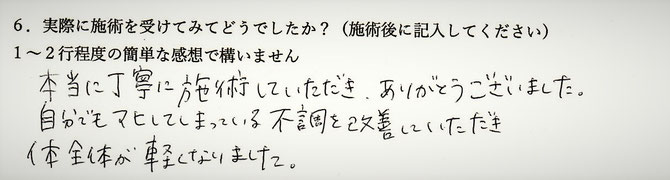 ６．実際に施術を受けてみてどうでしたか？（施術後に記入してください）
１～２行程度の簡単な感想で構いません
本当に丁寧に施術していただき、ありがとうございました。
自分でもマヒしてしまっている不調を改善していただき
体全体が軽くなりました。